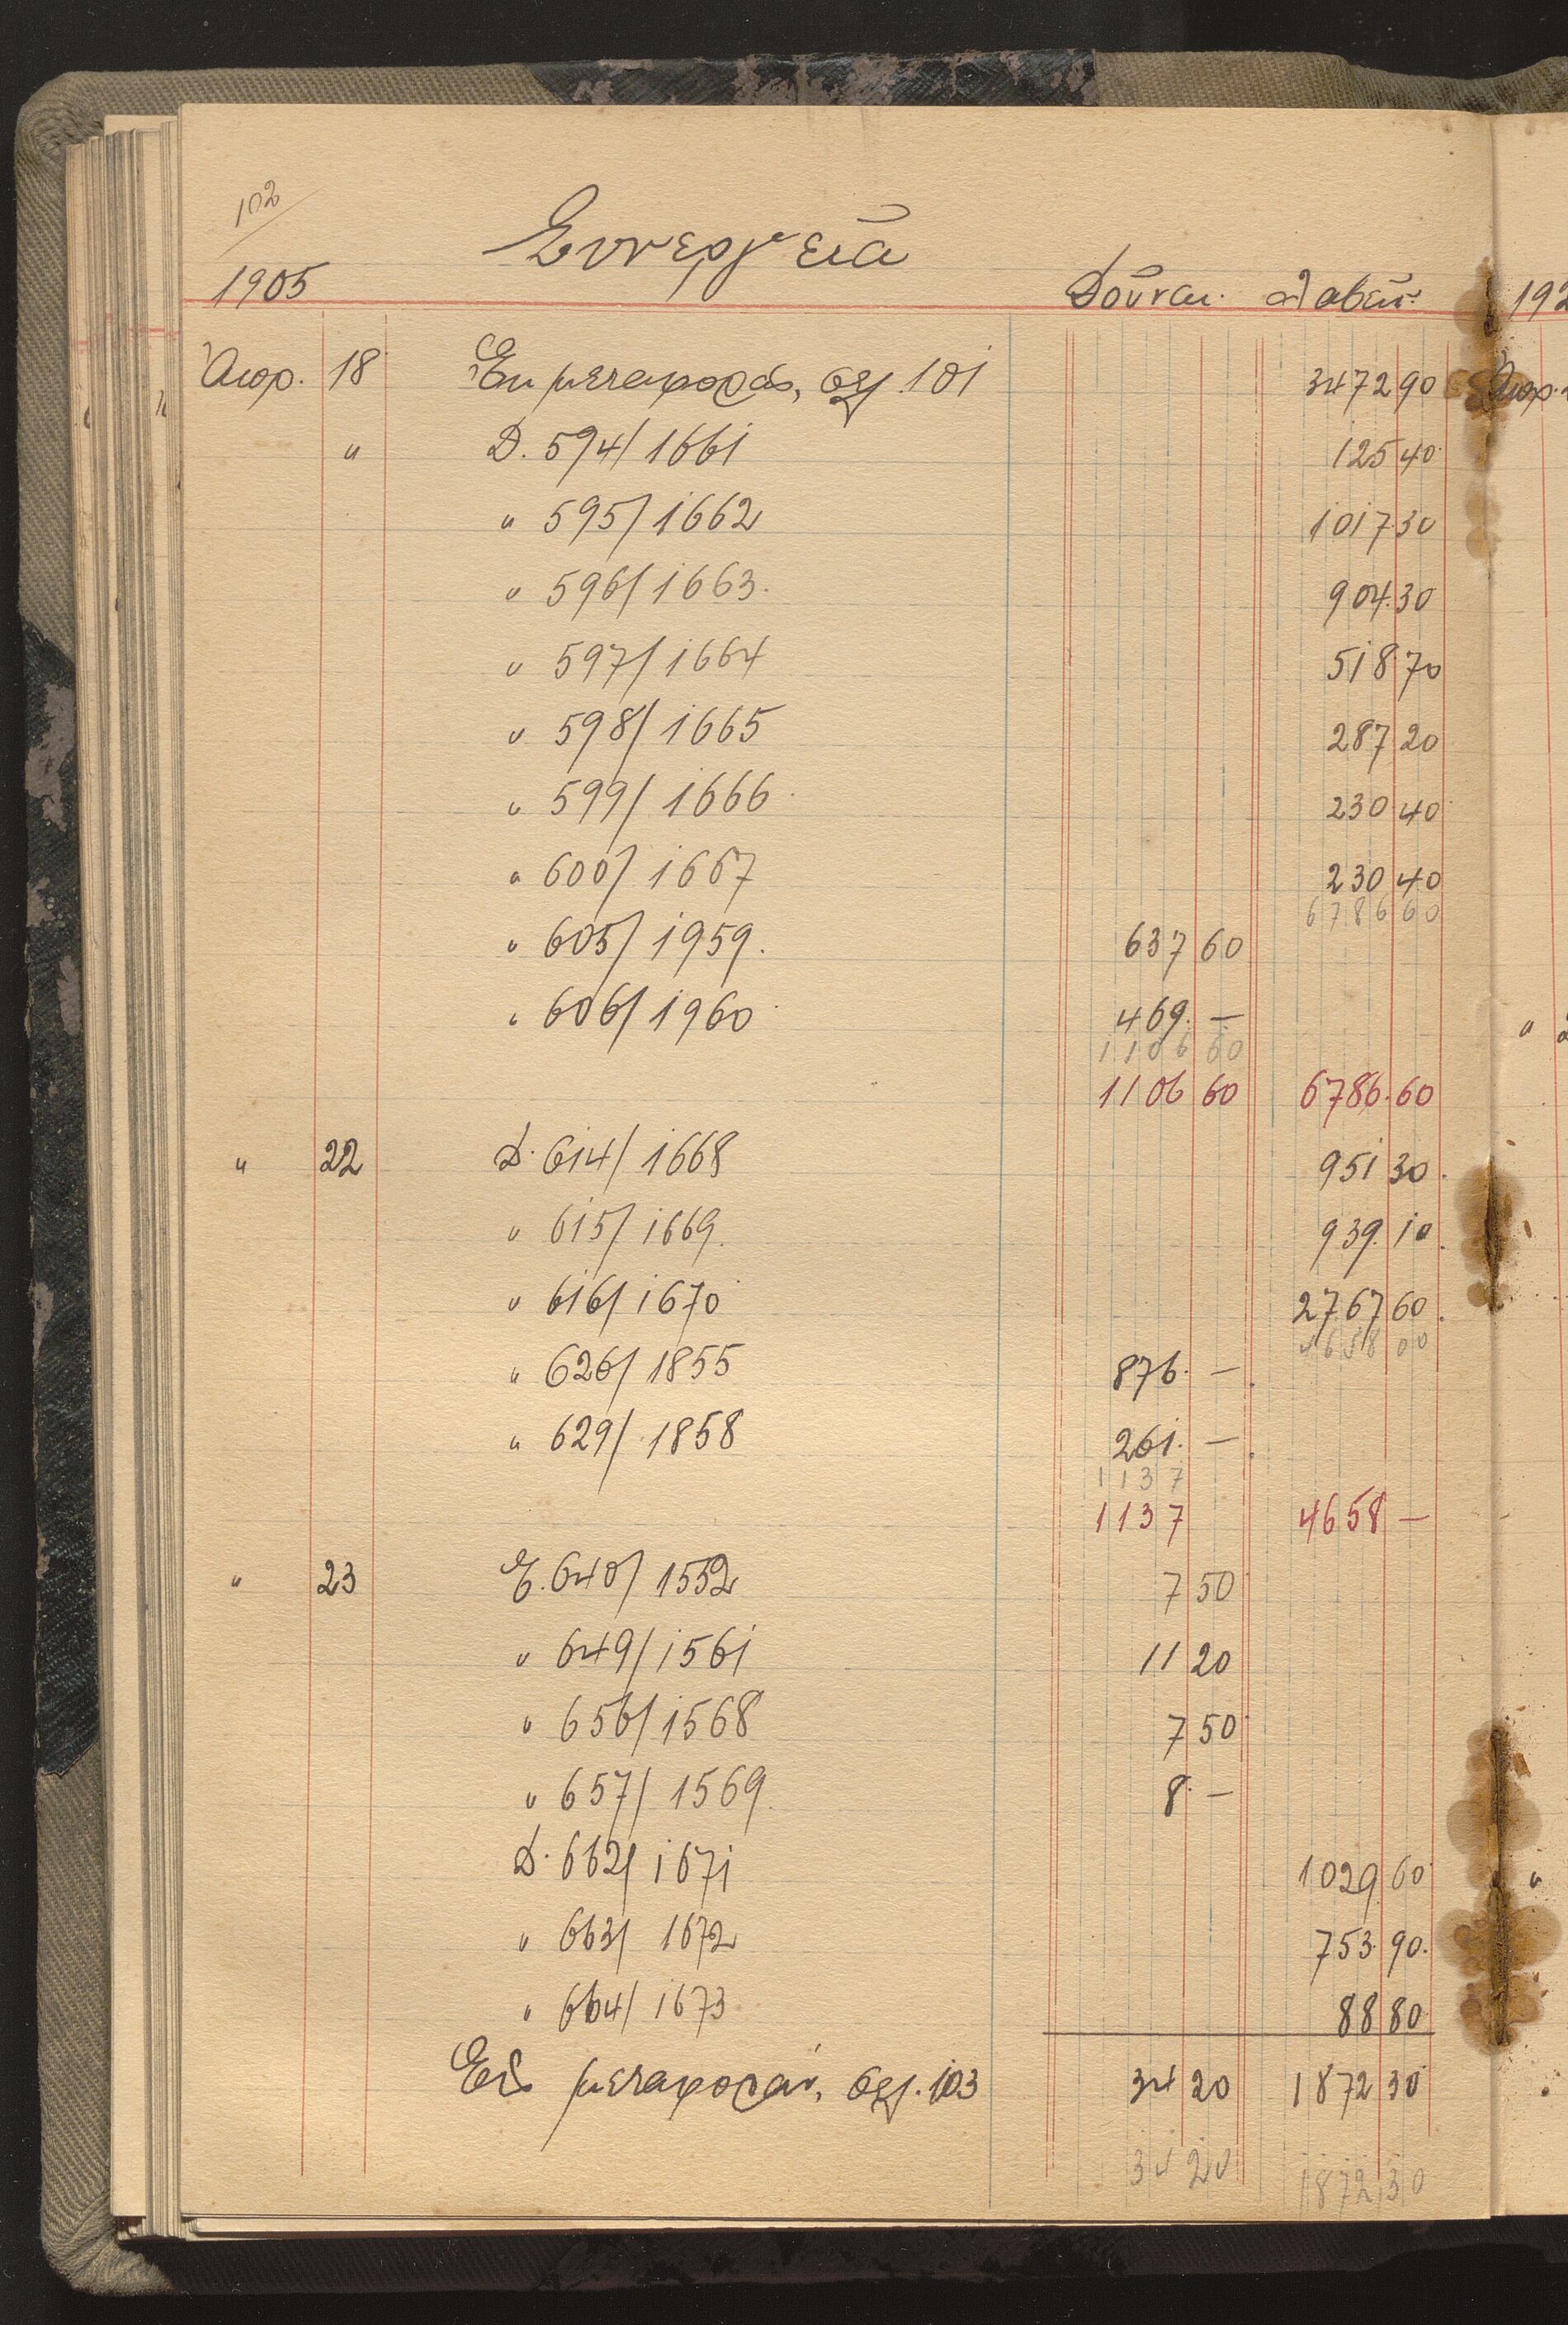 102
Συνεργεῖα
1905 Δοῦναι. Λαβεῖν. 192
Ἀπρ. 18 Ἐκ μεταφορᾶς, σελ. 101 3472 90 Ἀπρ.
" Δ. 594/1661 125 40
" 595/1662 1017 30
" 596/1663. 904. 30
" 597/1664 518 70
" 598/1665 287 20
" 599/1666 230 40
" 600/1667 230 40
6786 60
" 605/1959. 637 60
" 606/1960 469. — "
1106 60
1106 60 6786. 60
" 22 Δ. 614/1668 951 30.
" 615/1669. 939. 10.
" 616/1670 2767 60.
4658 00
" 626/1855 876. —
" 629/1858 261. —
1137
1137 4658 —
" 23 Ε. 640/1552 7 50
" 649/1561 11 20
" 656/1568 7 50
" 657/1569 8. —
Δ. 662/1671 1029 60 "
" 663/1672 753. 90.
" 664/1673 88 80
Εἰς μεταφοράν, σελ. 103 34 20 1872 30
34 20 1872 30